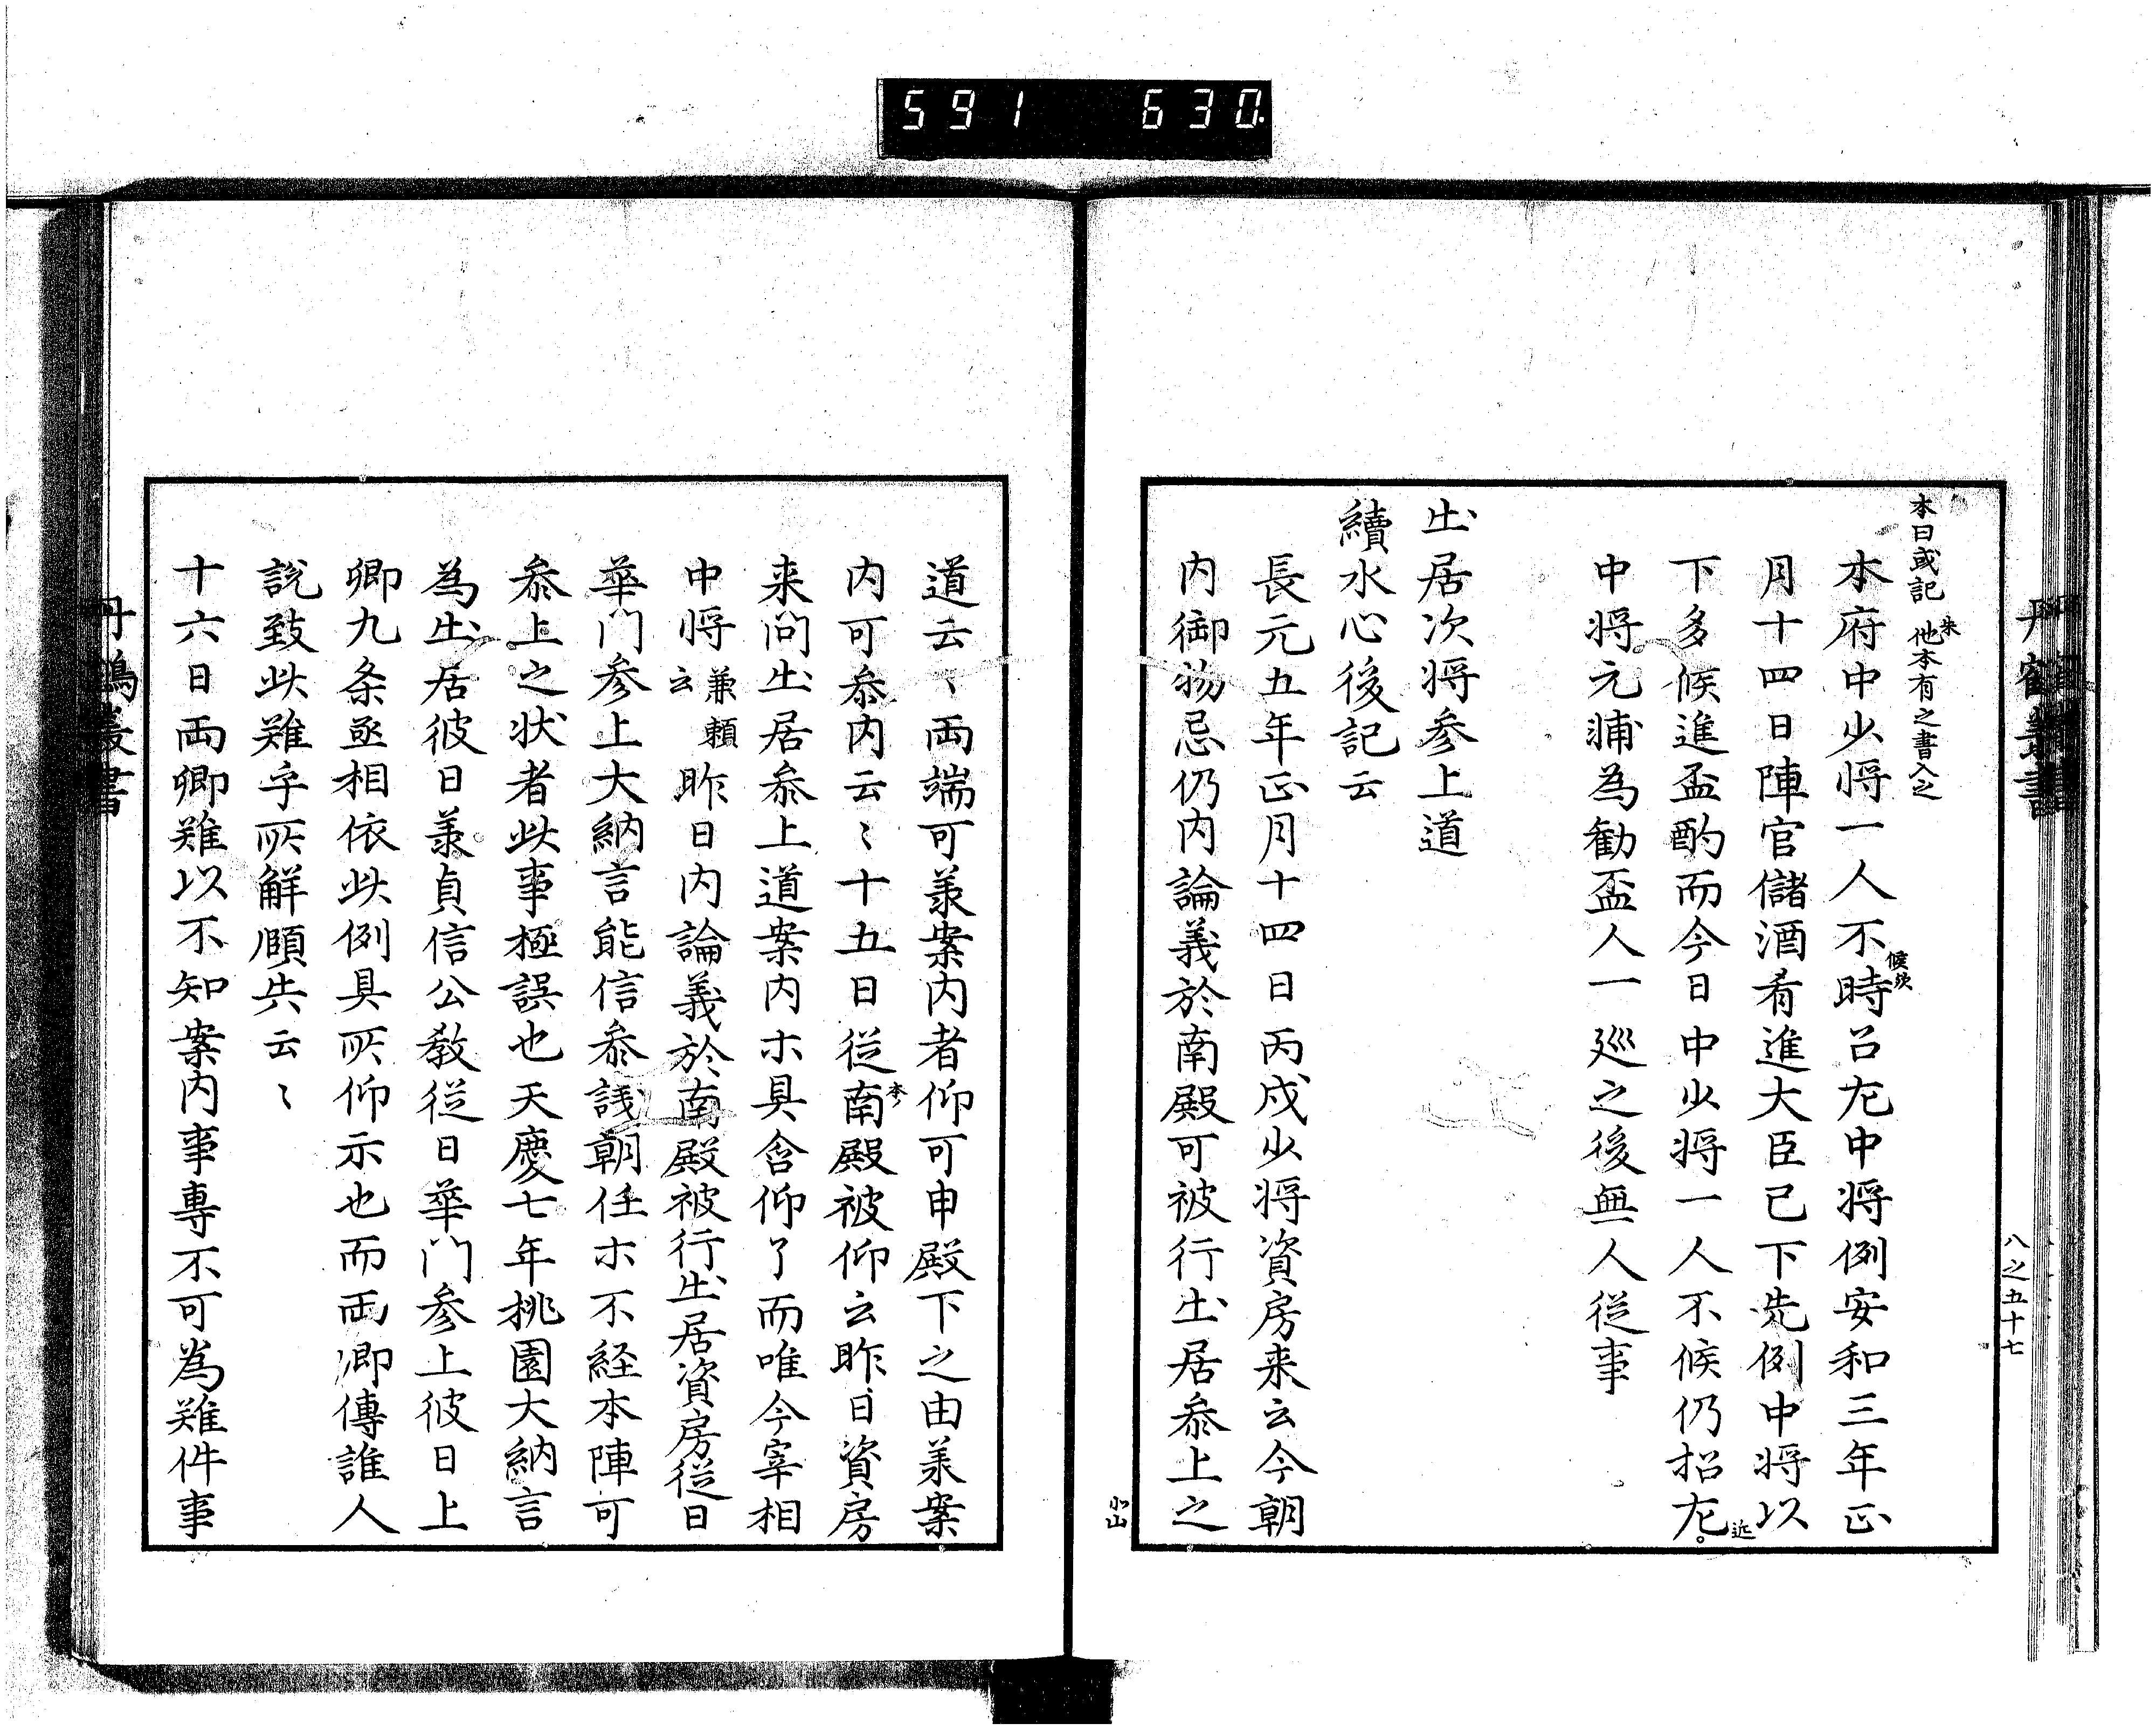 591 630
丹鶴叢書
八之五十七
本曰或記 朱 他本有之書入之
本府中少将一人不時召尤中将例安和三年正
候歟
月十四日陣官儲酒肴進大臣已下先例中将以
下多候進盃酌而今日中少将一人不候仍招尤
近
中将元浦為勧盃人一廵之後無人従事
出居次将参上道
續水心後記云
長元五年正月十四日丙戌少将資房来云今朝
内御物忌仍内論義於南殿可被行出居叅上之
小山
道云〻両端可羕案内者仰可申殿下之由羕案
内可叅内云〻十五日従南殿被仰云昨日資房
本ノ
来問出居叅上道案内木具含仰了而唯今宰相
中将兼頼云昨日内論義於南殿被行出居資房従日
華門参上大納言能信叅議朝任木不経本陣可
叅上之状者此事極誤也天慶七年桃園大納言
為出居彼日羕貞信公教従日華門参上彼日上
卿九条丞相依此例具所仰示也而両卿傳誰人
說致此難乎所解頤失云〻
十六日両卿難以不知案内事専不可為難件事
丹鶴叢書